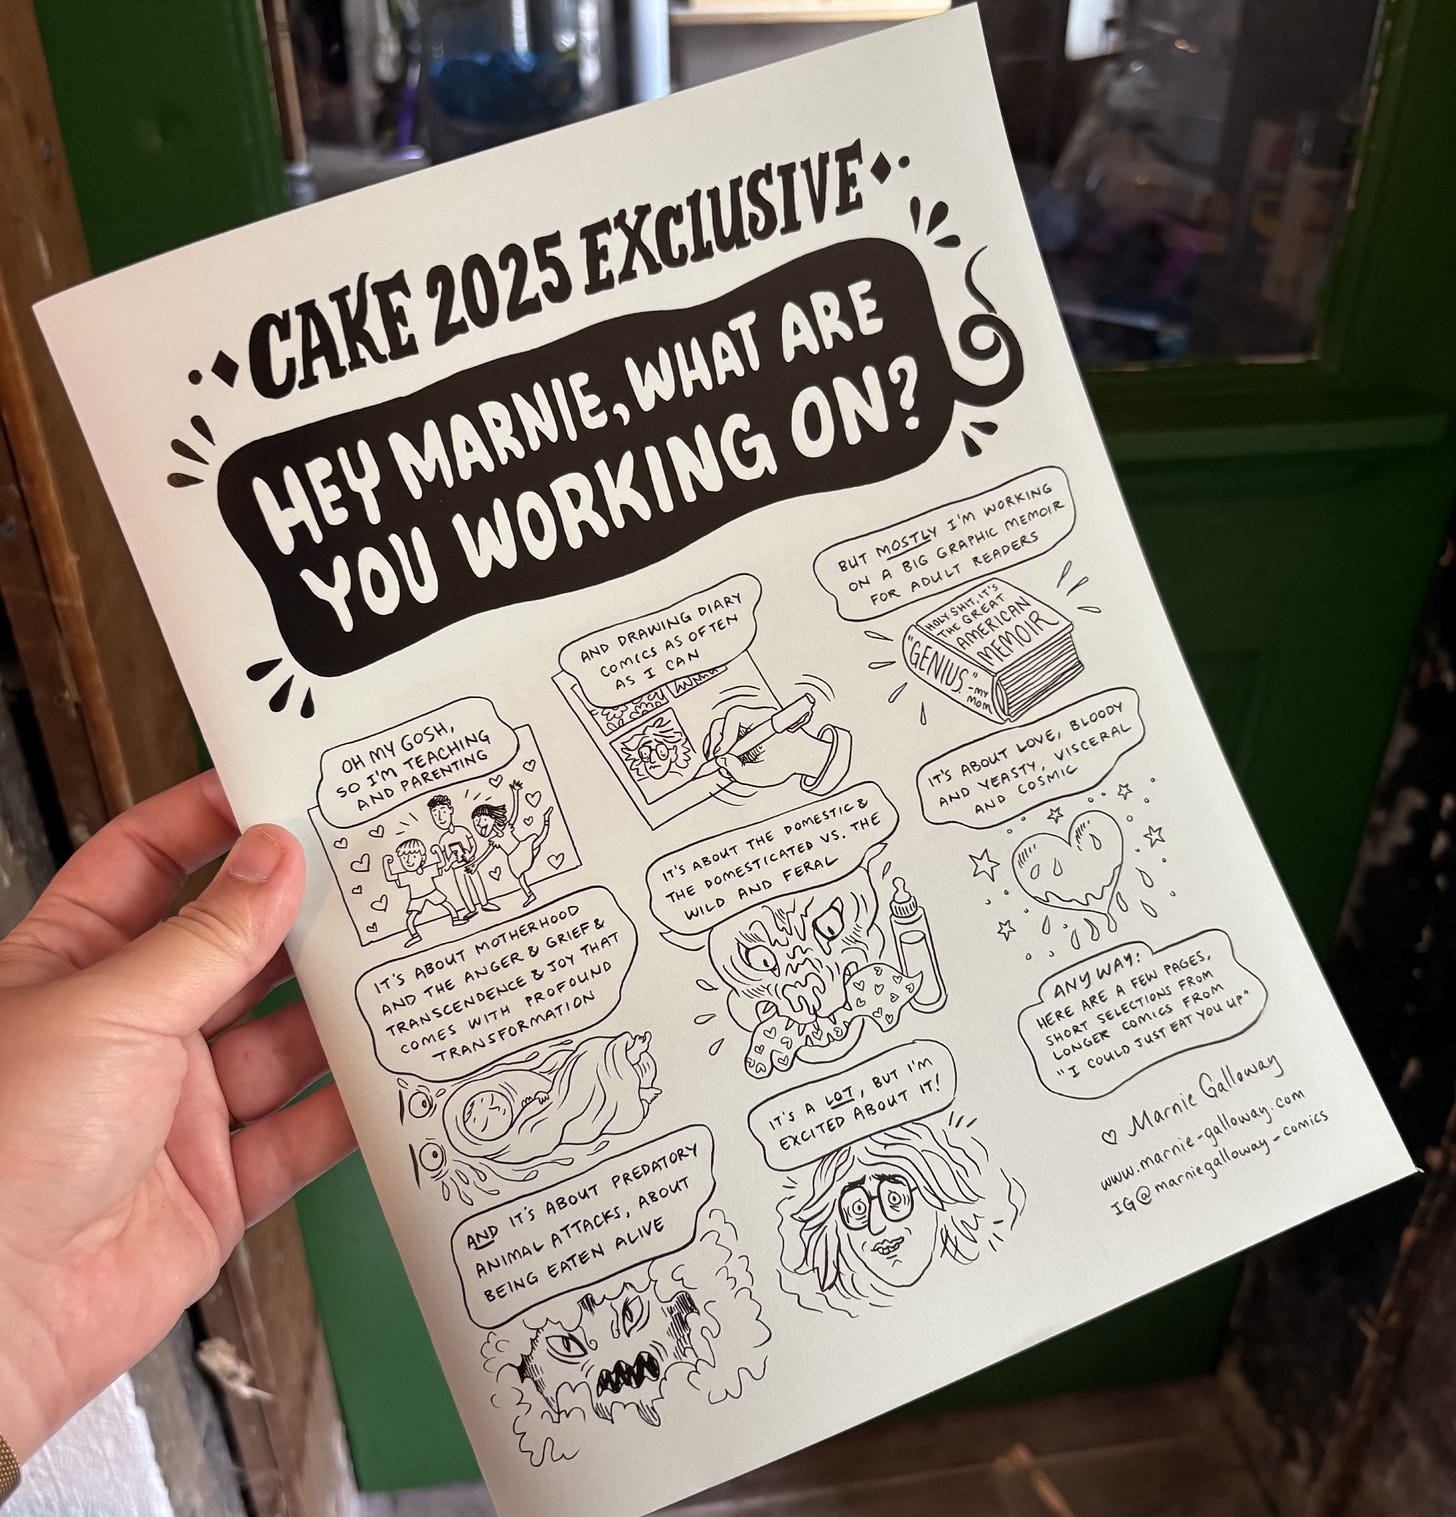 CAKE 2025 EXCLUSIVE
HEY MARNIE, WHAT ARE
YOU WORKING ON?
OH MY GOSH,
SO I'M TEACHING
AND PARENTING
AND DRAWING DIARY
COMICS AS OFTEN
AS I CAN
BUT MOSTLY I'M WORKING
ON A BIG GRAPHIC MEMOIR
FOR ADULT READERS
HOLY SHIT, IT'S
THE GREAT
AMERICAN
MEMOIR
"GENIUS."
-MY
MOM
IT'S ABOUT MOTHERHOOD
AND THE ANGER & GRIEF &
TRANSCENDENCE & JOY THAT
COMES WITH PROFOUND
TRANSFORMATION
IT'S ABOUT THE DOMESTIC &
THE DOMESTICATED VS. THE
WILD AND FERAL
IT'S ABOUT LOVE, BLOODY
AND YEASTY, VISCERAL
AND COSMIC
AND IT'S ABOUT PREDATORY
ANIMAL ATTACKS, ABOUT
BEING EATEN ALIVE
IT'S A LOT, BUT I'M
EXCITED ABOUT IT!
ANYWAY:
HERE ARE A FEW PAGES,
SHORT SELECTIONS FROM
LONGER COMICS FROM
"I COULD JUST EAT YOU UP"
♡ Marnie Galloway
www.marnie-galloway.com
IG@marniegalloway-comics